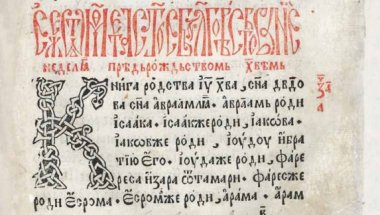 недѣлѧ прѣдрождьствомь хв҃ѣмь
Книга родства іу҃ хв҃а, сн҃а дв҃дова
сн҃а авраамлꙗ. авраамь роди
ісаака. ісаакжероди, іакѡва.
іаковже роди, іоудоу ибра
тію Его. іоудаже роди, фаре
реса изара ѿтамари. фаресже
роди Есрома. Есромже роди, арама. арам